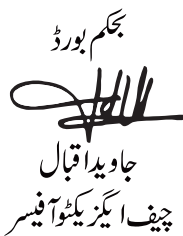 بحکم بورڈ
جاوید اقبال
چیف ایگزیکٹو آفیسر